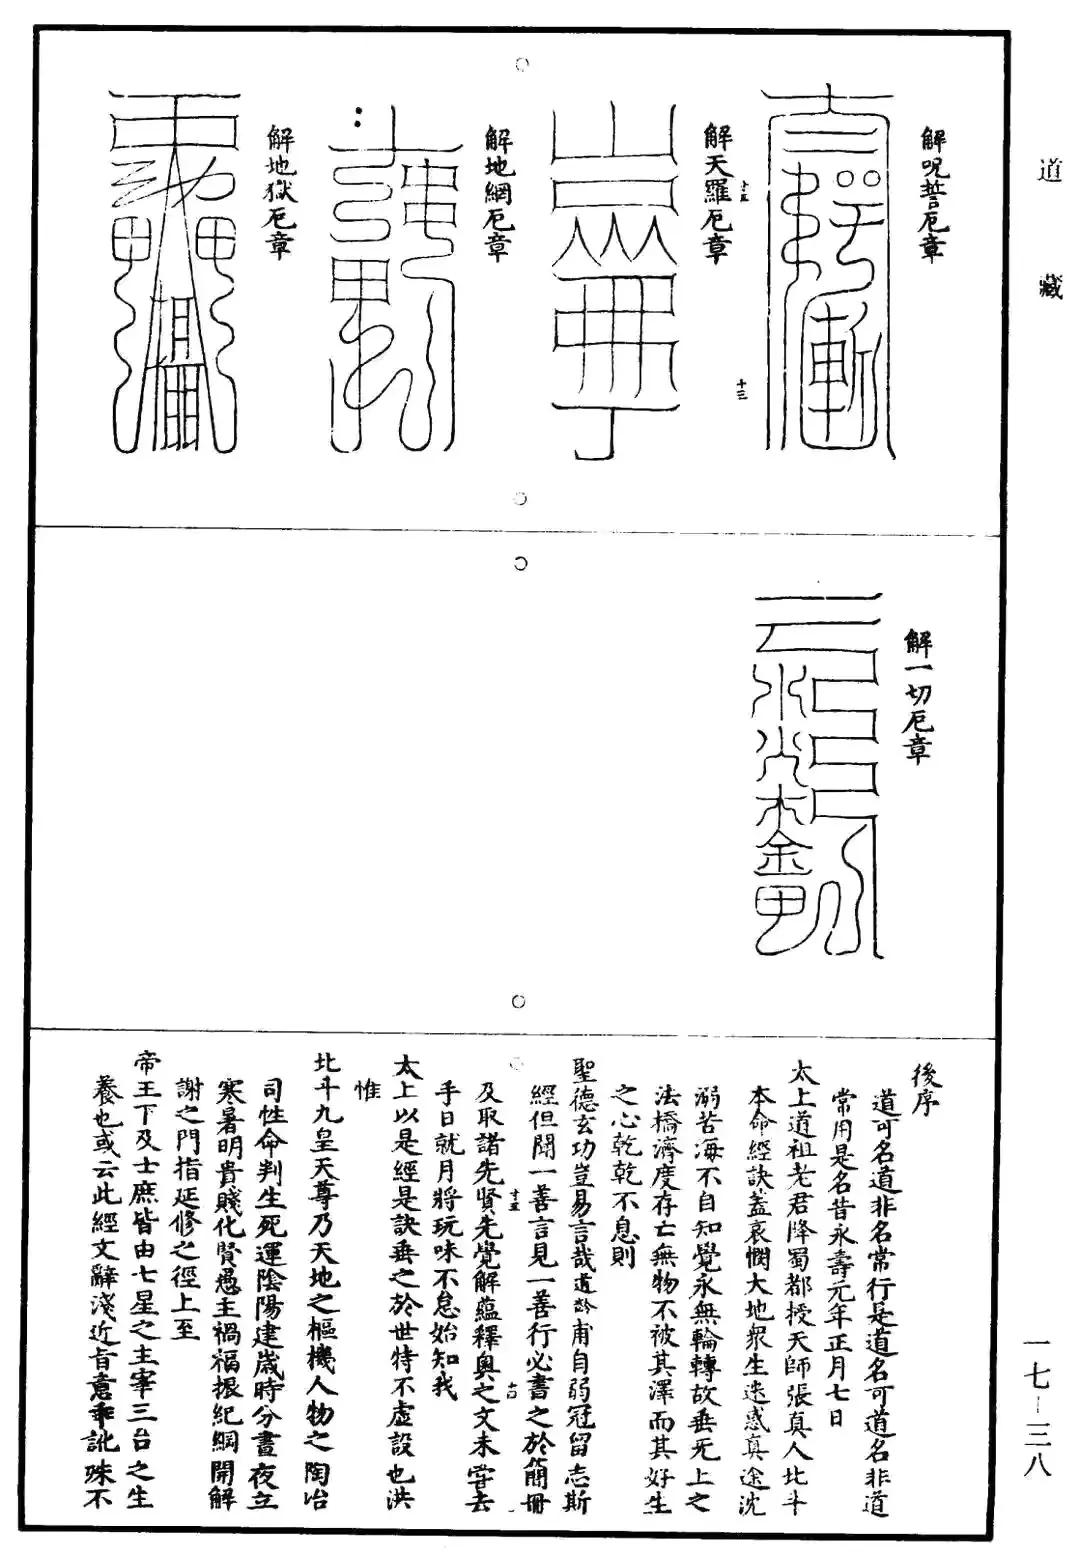 道藏
解呪誓厄章
十二
解天羅厄章
十三
解地網厄章
解地獄厄章
解一切厄章
後序
道可名道非名常行是道名可道名非道
常用是名昔永壽元年正月七日
太上道祖老君降蜀都授天師張真人北斗
本命經訣蓋哀憫大地眾生迷惑真途沈
溺苦海不自知覺永無輪轉故垂旡上之
法橋濟度存亡無物不被其澤而其好生
之心乾乾不息則
聖德玄功豈易言哉道齡甫自弱冠留志斯
經但聞一善言見一善行必書之於簡冊
十四
及取諸先賢先覺解蘊釋奧之文未嘗去
手日就月將玩味不怠始知我
太上以是經是訣垂之於世特不虛設也洪
惟
北斗九皇天尊乃天地之樞機人物之陶冶
司性命判生死運陰陽建歲時分晝夜立
寒暑明貴賤化賢愚主禍福振紀綱開解
謝之門指延修之徑上至
帝王下及士庶皆由七星之主宰三台之生
養也或云此經文辭淺近旨意乖訛殊不
一七-三八